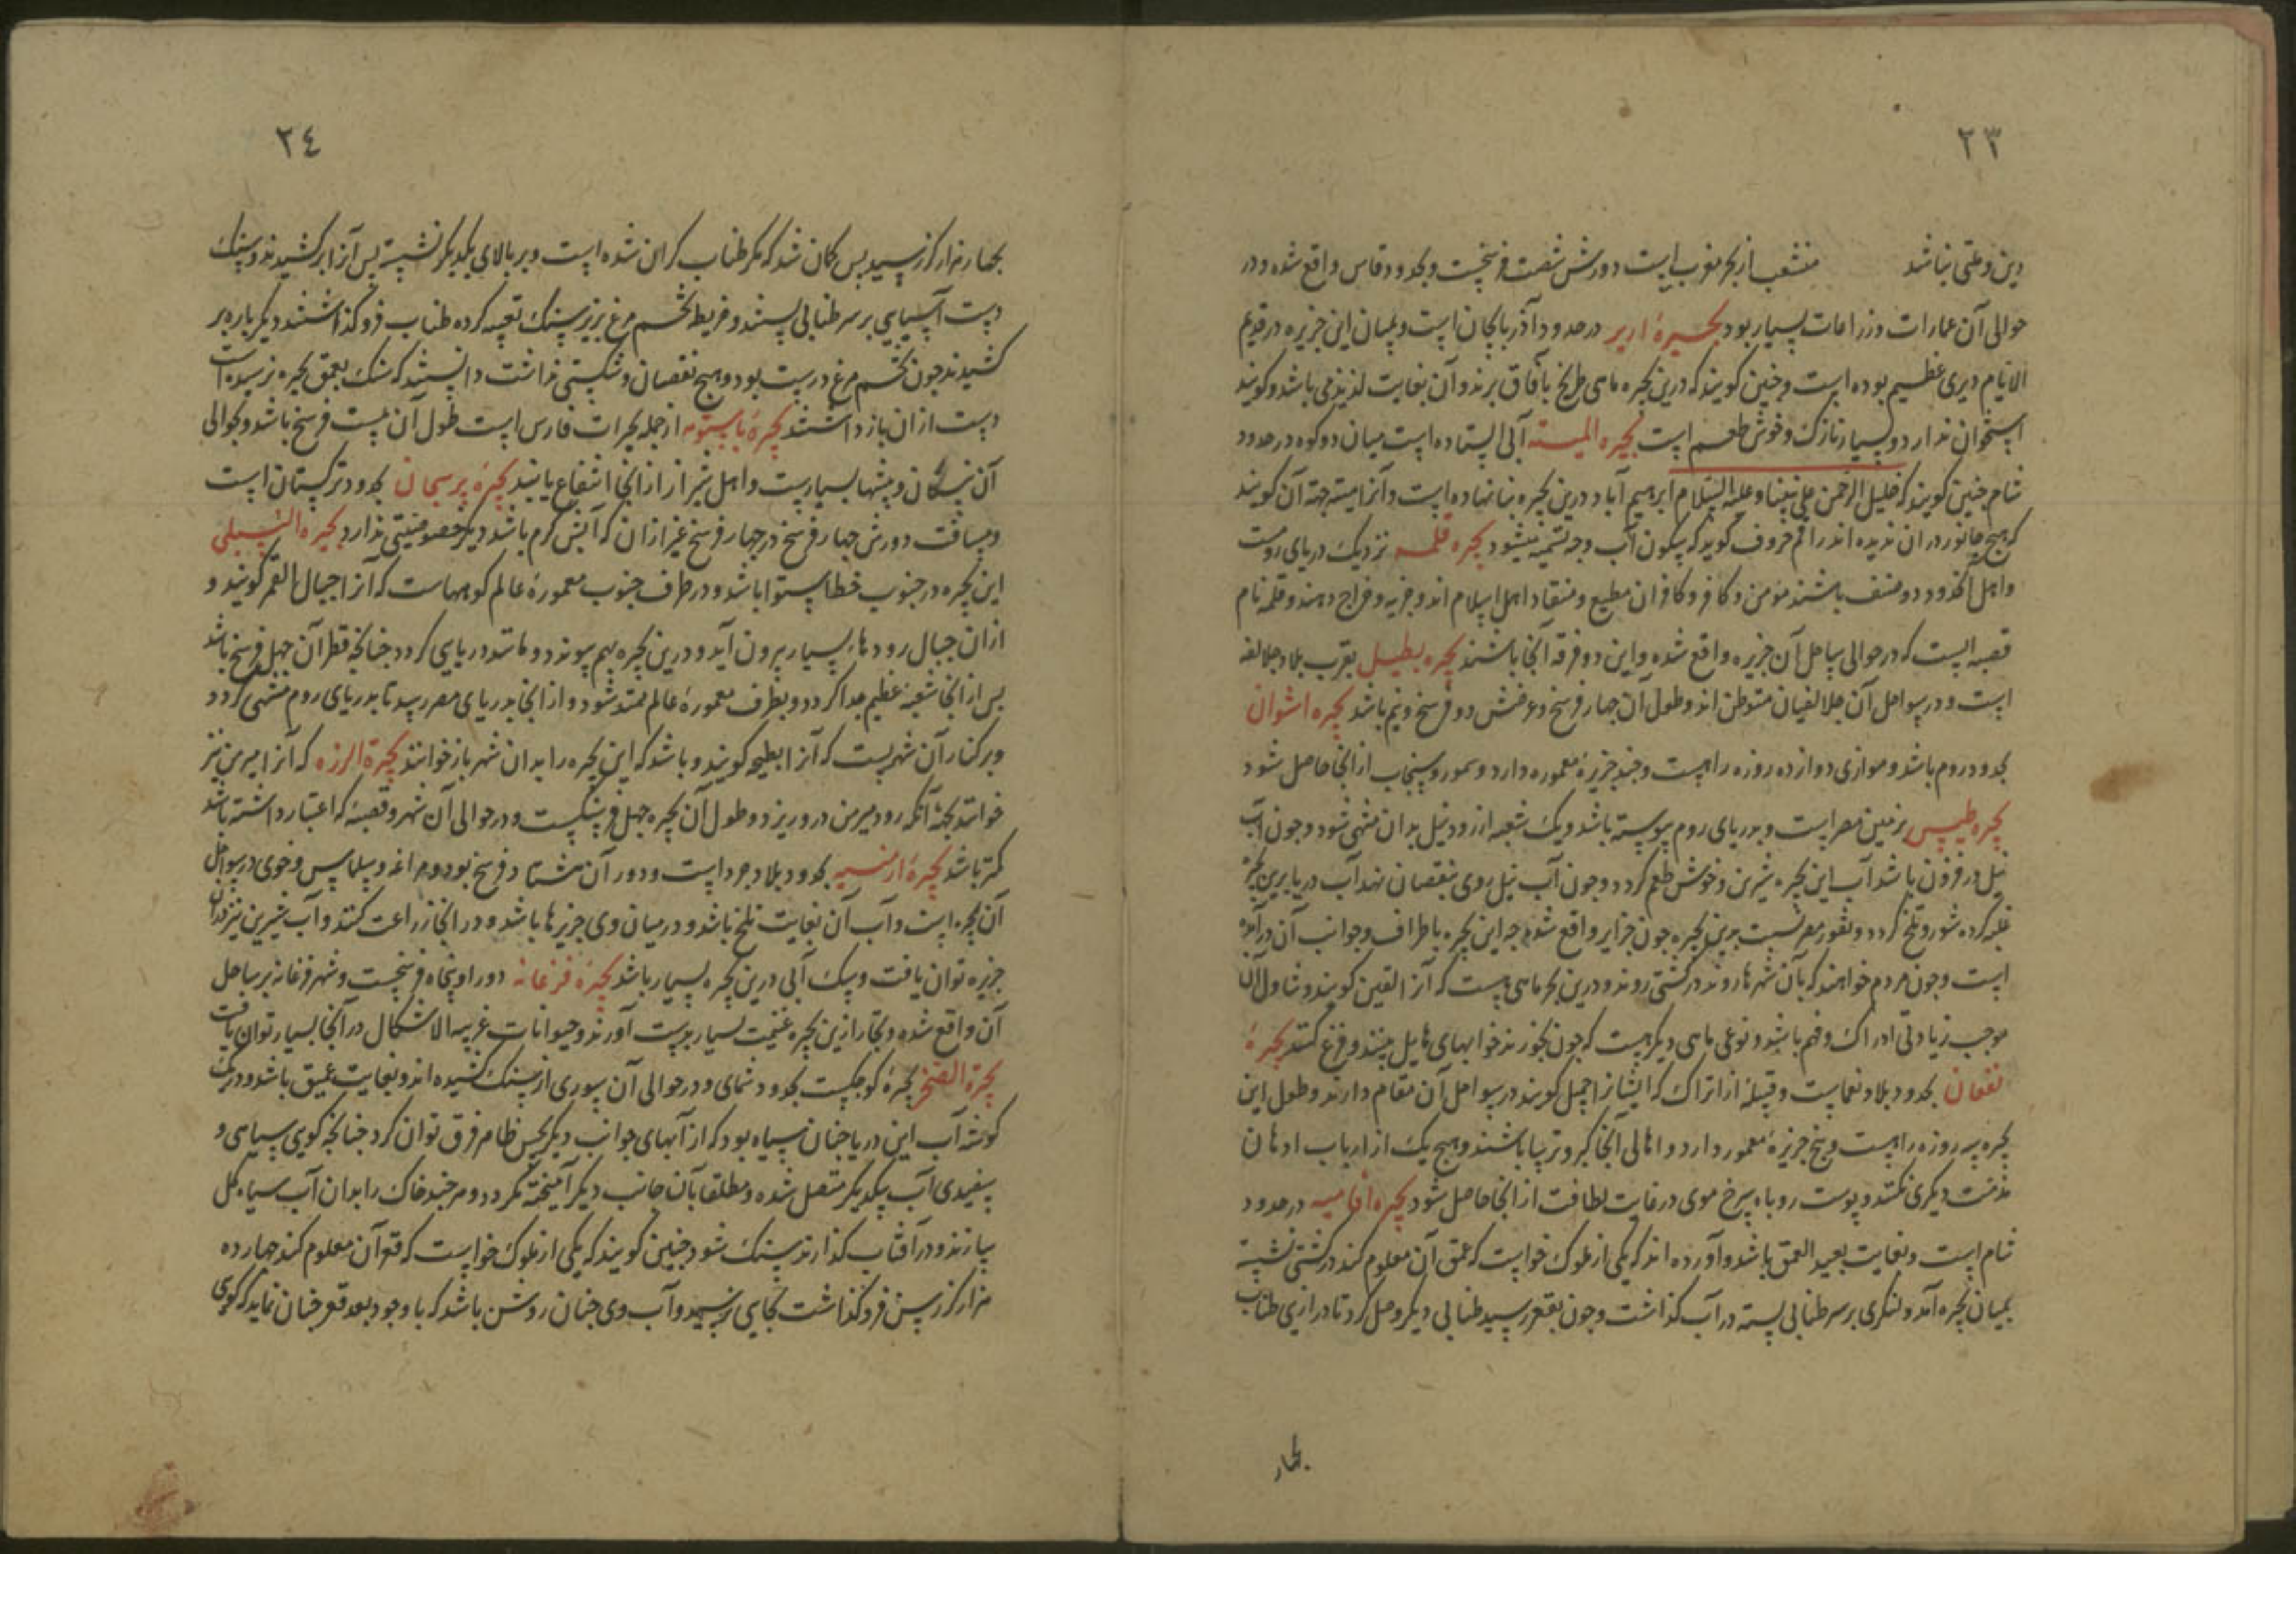 ۲۳
دین و ملتی نباشد منشعب از بحر مغرب است دورش شصت فرسخست و بحدود فاس واقع شده و در
حوالی آن عمارات و زراعات بسیار بود بحیرهٔ اریر در حدود آذربایجان است و بمیان این جزیره در قدیم
الایام دیری عظیم بوده است و چنین کویند که درین بحیره ماهی طریخ بآفاق برند و آن بغایت لذیذ می باشد و کویند
استخوان ندارد و بسیار نازک و خوش طعم است بحیره المیته آبی ایستاده است میان دو کوه در حدود
شام چنین کویند که خلیل الرحمن علی نبینا و علیه السلام ابرهیم آباد درین بحیره بنا نهاده است و آنرا میته جهة آن کویند
که هیچ جانور در ان ندیده اند راقم حروف کوید که بسکون آب وجه تسمیه میشود بحیره قلمه نزدیک دریای رومست
و اهل آنحدود دو صنف باشند مؤمن و کافر و کافران مطیع و منقاد اهل اسلام اند و جزیه و خراج دهند و قلمه نام
قصبه ایست که در حوالی ساحل آن جزیره واقع شده و این دو فرقه آنجا باشند بحیره بطیل بقرب بلاد جلالقه
است و در سواحل آن جلالقیان متوطن اند و طول آن چهار فرسخ و عرضش دو فرسخ و نیم باشد بحیره اشوان
بحدود روم باشد و موازی دوازده روزه راهست و چند جزیرهٔ معموره دارد و سمور و سنجاب از انجا حاصل شود
بحیره طیس بزمین مصر است و بدریای روم پیوسته باشد و یک شعبه از رود نیل بدان منتهی شود و چون آب
نیل در فزون باشد آب این بحیره شیرین و خوش طعم کردد و چون آب نیل روی بنقصان نهد آب دریا برین بحیره
غلبه کرده شور و تلخ کردد و ثغور مصر نسبت برین بحیره چون جزایر واقع شده چه این بحیره باطراف و جوانب آن درآمده
است و چون مردم خواهند که بآن شهرها روند در کشتی روند و درین بحر ماهی هست که آنرا القین کویند و تناول آن
موجب زیادتی ادراک و فهم باشد و نوعی ماهی دیکر هست که چون بخورند خوابهای هایل بینند و فزع کنند بحیرهٔ
نغمان بحدود بلاد نغماست و قبیلهٔ از اتراک که ایشانرا اجمل کویند در سواحل آن مقام دارند و طول این
بحیره سه روزه راهست و پنج جزیرهٔ معمور دارد و اهالی آنجا کبر و ترسا باشند و هیچ یک از ارباب ادیان
مذمت دیکری نکنند و پوست روباه سرخ موی در غایت لطافت از انجا حاصل شود بحیره افامیه در حدود
شام است و بغایت بعید العمق باشد و آورده اند که یکی از ملوک خواست که عمق آن معلوم کند در کشتی نشسته
بمیان بحیره آمد و لنکری بر سر طنابی بسته در آب کذاشت و چون بقعر رسید طنابی دیکر وصل کرد تا درازی طناب
بچهار
۲٤
بچهار هزار کز رسید پس کمان شد که مکر طناب کران شده است و بر بالای یکدیکر نشسته پس آنرا برکشیدند و سنک
دست آسیایی بر سر طنابی بستند و خریطه تخم مرغ بزیر سنک تعبیه کرده طناب فرو کذاشتند دیکر باره بر
کشیدند چون تخم مرغ درست بود و هیچ نقصان و شکستی نداشت دانستند که سنک بعمق بحیره نرسیده است
دست از ان باز داشتند بحیرهٔ باستویه از جمله بحیرات فارس است طول آن بیست فرسخ باشد و بحوالی
آن نیستان و بیشها بسیارست و اهل شیراز از آنجا انتفاع یابند بحیرهٔ برسجان بحدود ترکستان است
و مسافت دورش چهار فرسخ در چهار فرسخ غیر از ان که آبش کرم باشد دیکر خصوصیتی ندارد بحیره النیلی
این بحیره در جنوب خط استوا باشد و در طرف جنوب معمورهٔ عالم کوههاست که آنرا جبال القمر کویند و
از ان جبال رودهاء بسیار بیرون آید و درین بحیره بهم پیوندد و مانند دریایی کردد چنانچه قطر آن چهل فرسخ باشد
پس از آنجا شعبهٔ عظیم جدا کردد و بطرف معمورهٔ عالم ممتد شود و از انجا بدریای مصر رسد تا بدریای روم منتهی کردد
و بر کنار آن شهریست که آنرا بطیحه کویند و باشد که این بحیره را بدان شهر باز خوانند بحیرة الرزه که آنرا میرمن نیز
خوانند بجهة آنکه رود میرمن در و ریزد و طول آن بحیره چهل فرسنکست و در حوالی آن شهر و قصبهٔ که اعتبار داشته باشد
کمتر باشد بحیرهٔ ارمنیه بحدود بلاد جرد است و دور آن هشتاد فرسخ بود و مراغه و سلماس و خوی در سواحل
آن بحیره است و آب آن بغایت تلخ باشد و در میان وی جزیرها باشد و در آنجا زراعت کنند و آب شیرین نیز در آن
جزیره توان یافت و سک آبی درین بحیره بسیار باشد بحیرهٔ فرغانه دور او پنجاه فرسخست و شهر فرغانه بر ساحل
آن واقع شده و تجار ازین بحیره غنیمت بسیار بدست آورند و حیوانات غریبه الاشکال در آنجا بسیار توان یافت
بحیرة الفتح بحیرهٔ کوچکست بحدود شمای و در حوالی آن سوری از سنک کشیده اند و بغایت عمیق باشد و در یک
کوشه آب این دریا چنان سیاه بود که از آبهای جوانب دیکر بحس ظاهر فرق توان کرد چنانچه کویی سیاهی و
سفیدی آب بیکدیکر متصل شده و مطلقا بآن جانب دیکر آمیخته نکردد و هر چند خاک را بدان آب سیاه کل
سازند و در آفتاب کذارند سنک شود چنین کویند که یکی از ملوک خواست که قعر آن معلوم کند چهارده
هزار کز رسن فرو کذاشت بجایی نرسید و آب وی چنان روشن باشد که با وجود بعد قعر چنان نماید که کویی